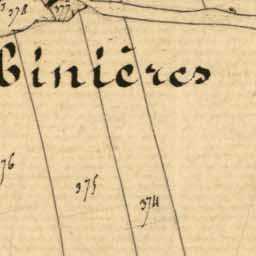 378 377
binières
76
375
374